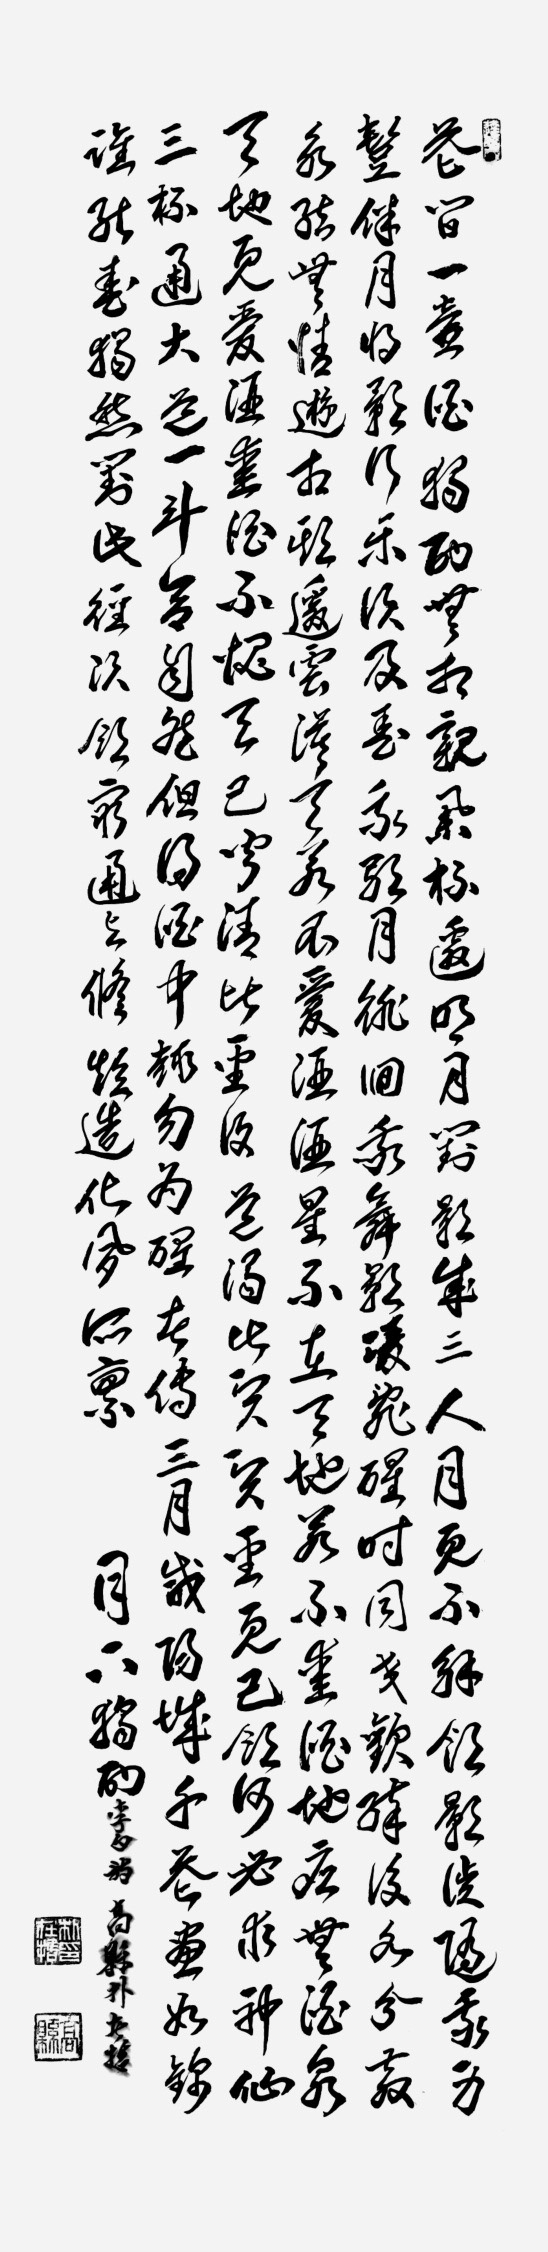 花間一壺酒獨酌無相親舉杯邀明月對影成三人月既不解飲影徒隨我身
暫伴月將影行樂須及春我歌月徘徊我舞影凌亂醒時同交歡醉後各分散
永結無情遊相期邈雲漢天若不愛酒酒星不在天地若不愛酒地應無酒泉
天地既愛酒愛酒不愧天已聞清比聖復道濁比賢賢聖既已飲何必求神仙
三杯通大道一斗合自然但得酒中趣勿為醒者傳三月咸陽城千花晝如錦
誰能春獨愁對此徑須飲窮通與修短造化夙所稟 月下獨酌 李白詩 高縣